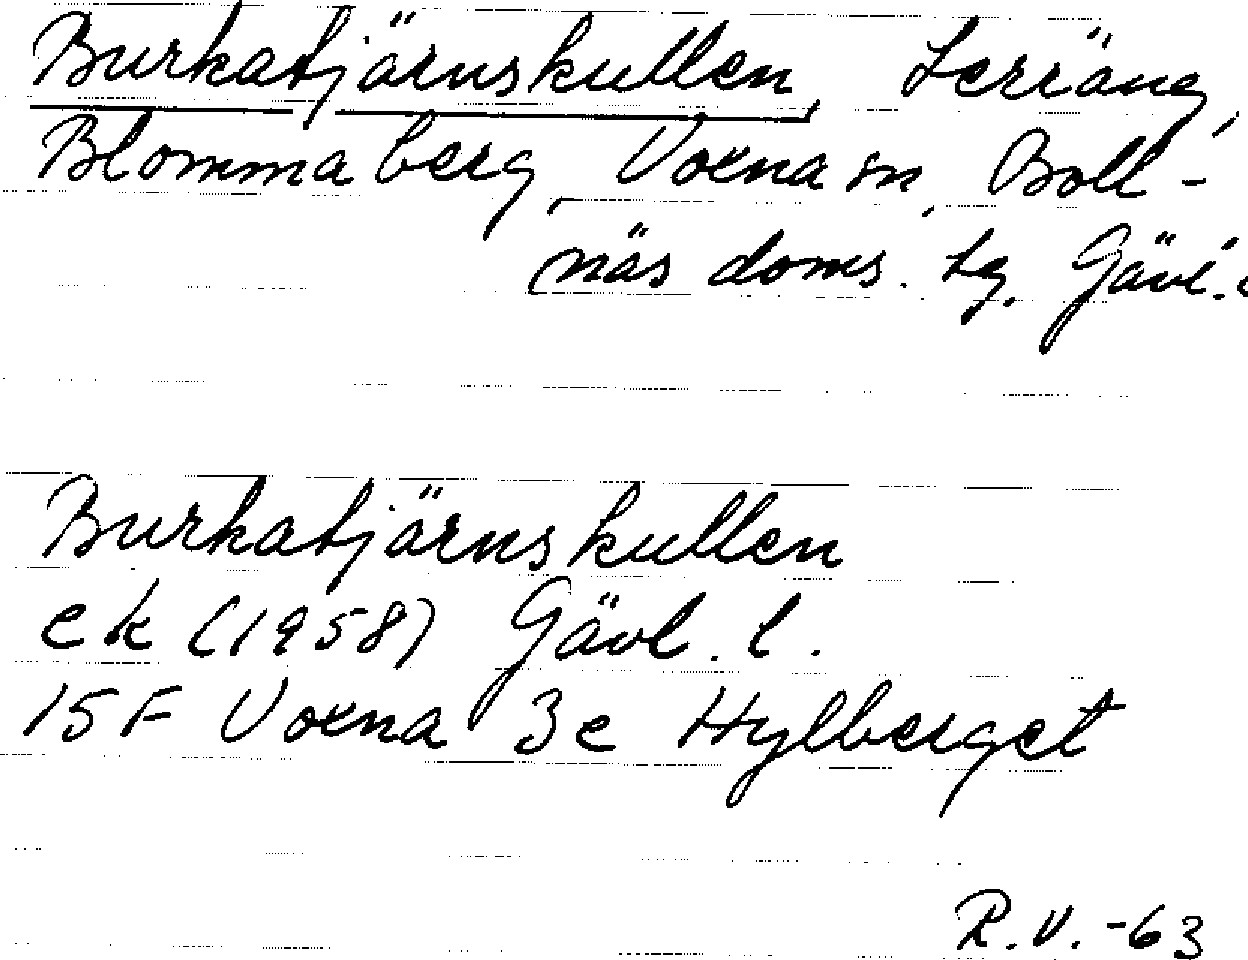 Burkatjärnskullen, Terräng,
Blommaberg, Voxna sn, Boll-
näs doms. tg. Gävl. l
Burkatjärnskullen
ek (1958) Gävl. l.
15F Voxna 3e Hylberget
R.V. -63